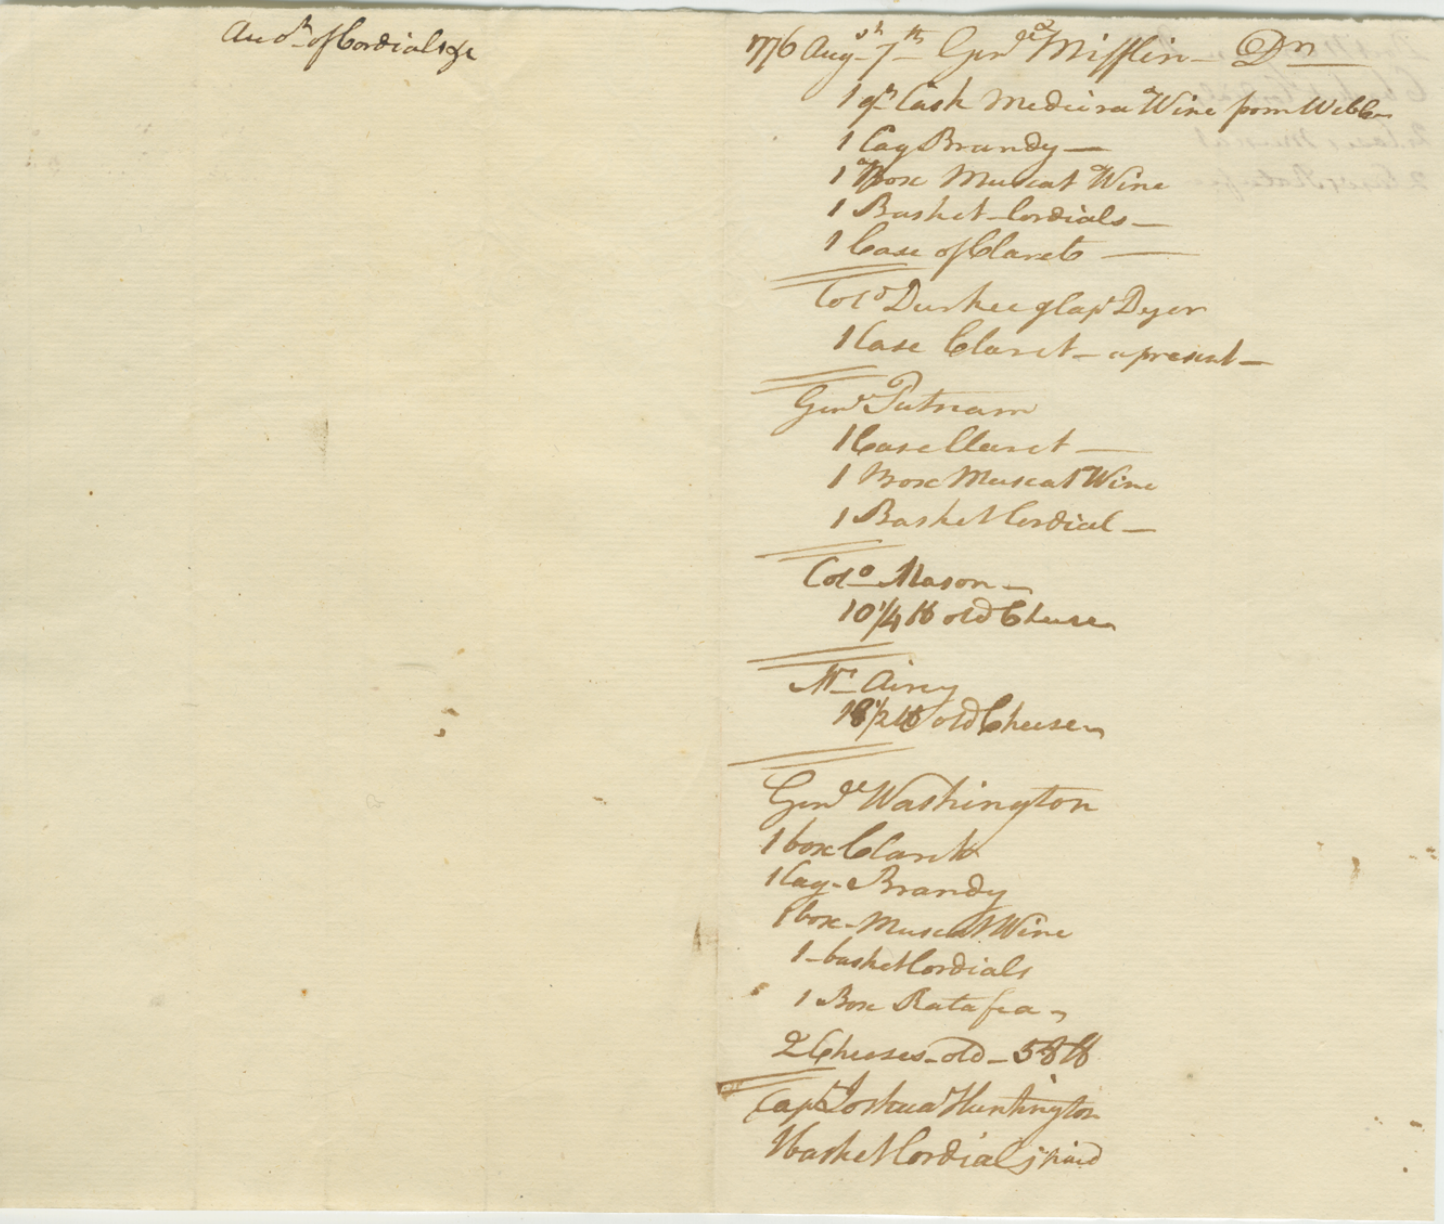 Acc.t of Cordials &c
1776 Aug.st 7th Gen.l Mifflin Dr
1 qr Cask Medeira Wine from Webb
1 Cag Brandy
1 Box Muscat Wine
1 Basket Cordials
1 Case of Claret
Colo Durkee & Capt Dyer
1 Case Claret a present
Genl Putnam
1 Case Claret
1 Box Muscat Wine
1 Basket Cordial
Colo Mason
10 1/4 lb old Cheese
Mr Airey
18 1/2 lb old Cheese
Genll Washington
1 box Claret
1 Cag Brandy
1 box Muscat Wine
1 basket Cordials
1 Box Ratafea
2 Cheeses old 58 lb
Capt Joshua Huntington
1 basket Cordials paid